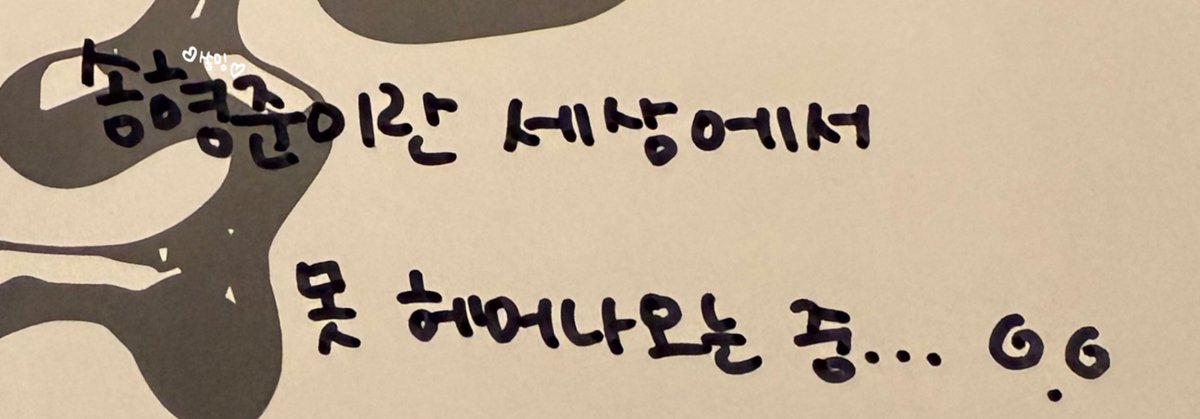 송형준이란 세상에서
못 헤어나오는 중... @.@